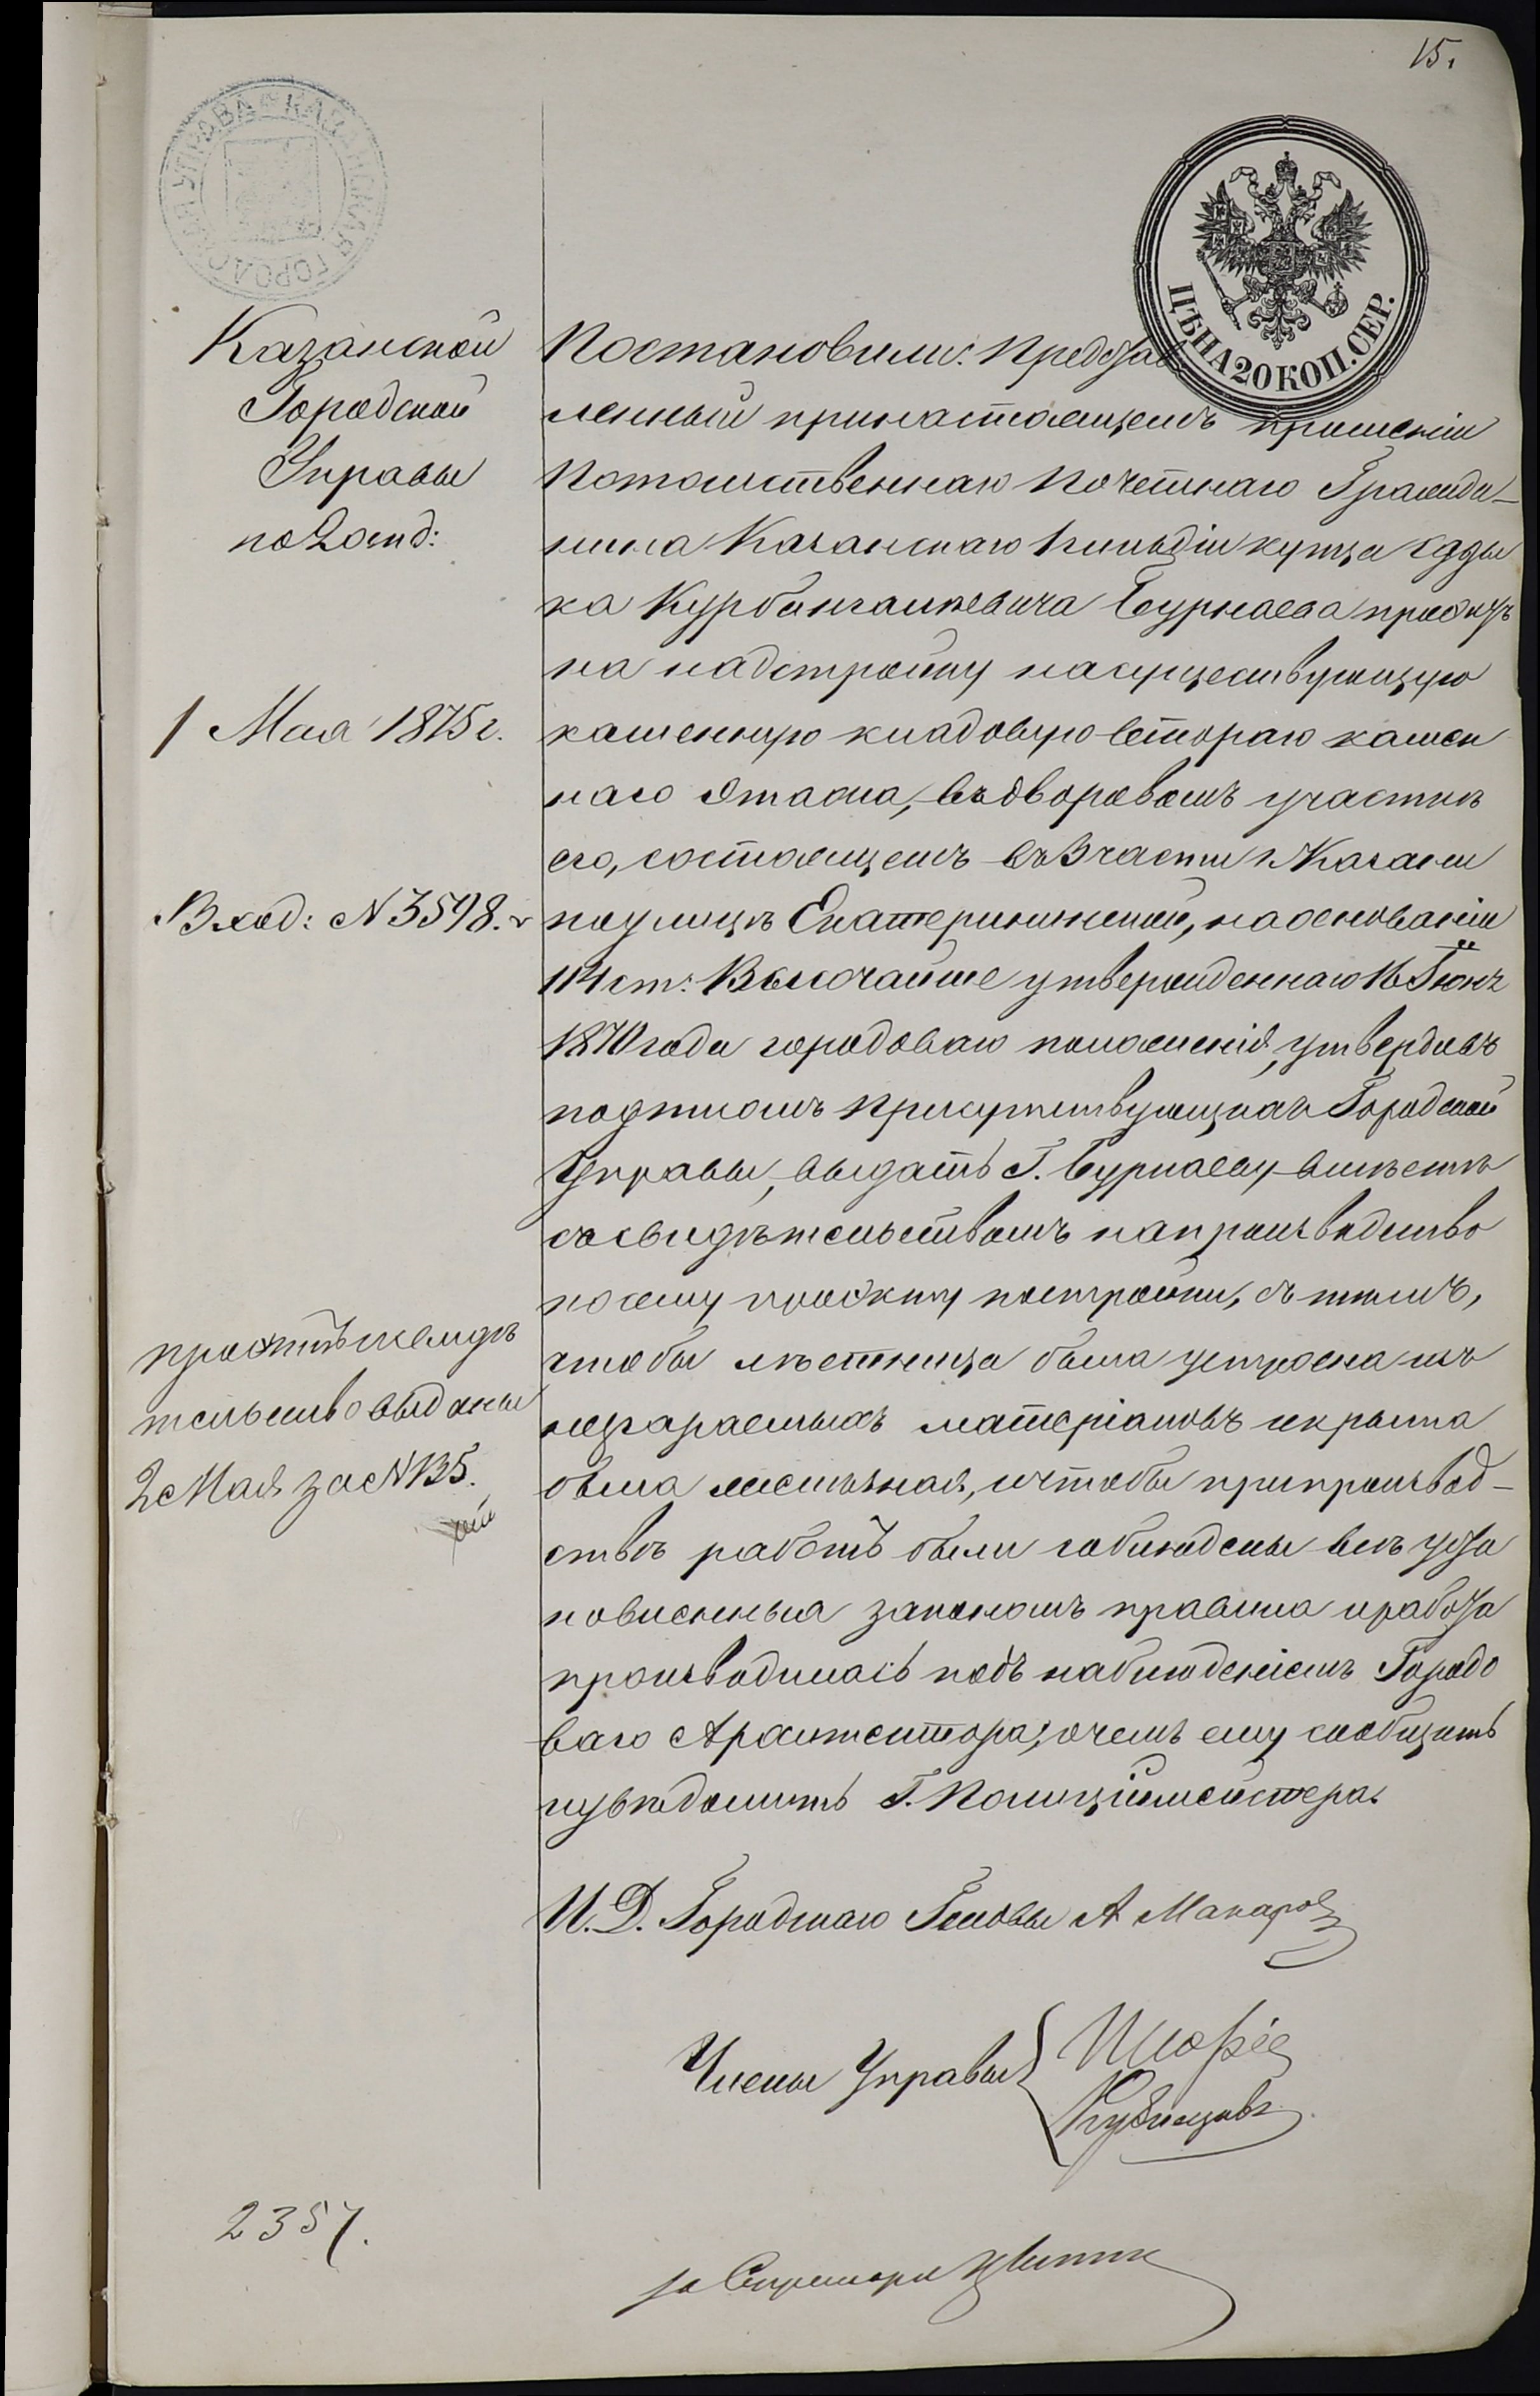 15.
КАЗАНСКАЯ ГОРОДСКАЯ УПРАВА
ЦѢНА 20 КОП. СЕР.
Казанской
Городской
Управы
по 2 отд:
1 Мая 1875 г.
Вход: № 3598.
проэктъ и свидѣ
тельство выданы
2 Мая за № 135.
2357.
Постановили: Представ
ленный при настоящемъ прошеніи
Потомственнаго Почетнаго Гражда-
нина Казанскаго 1 гильдіи купца Садды
ка Курбангалиевича Бурнаева проэктъ
на надстройку на существующую
каменную кладовую втораго камен
наго этажа, въ дворовомъ участкѣ
его, состоящемъ въ 3 части г. Казани
по улицѣ Екатерининской, на основаніи
114 ст. Высочайше утвержденнаго 16 Іюня
1870 года городоваго положенія, утвердивъ
подписомъ присутствующихъ Городской
Управы, выдать Г. Бурнаеву вмѣстѣ
со свидѣтельствомъ на производство
по сему проэкту постройки, съ тѣмъ,
чтобы лѣстница была устроена изъ
несгараемыхъ матеріаловъ и крыта
была желѣзная, и чтобы при производ-
ствѣ работъ были соблюдены всѣ уста
новленныя закономъ правила и работа
производилась подъ наблюденіемъ Городо
ваго Архитектора, о чемъ ему сообщить
и увѣдомить Г. Полиціймейстера.
И. Д. Городскаго Головы А Макаровъ
Члены Управы
за Секретаря